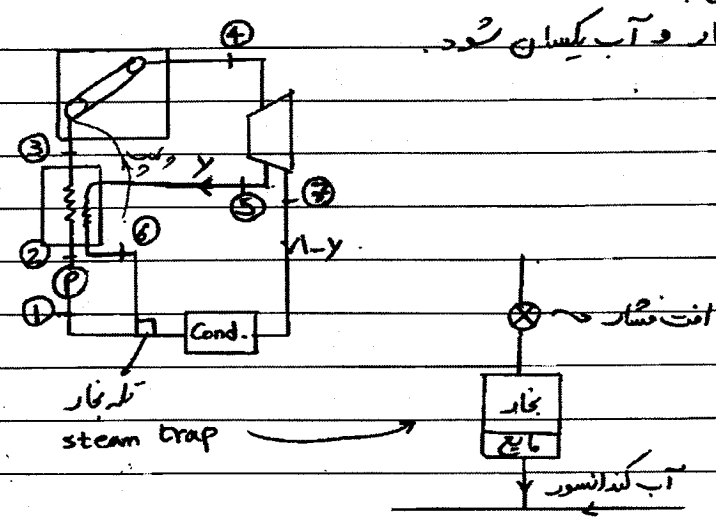 ار و آب یکسان شود.
4
3
y
5
7
6
2
1-y
P
1
Cond.
افت فشار
تله بخار
بخار
steam trap
مایع
آب کندانسور